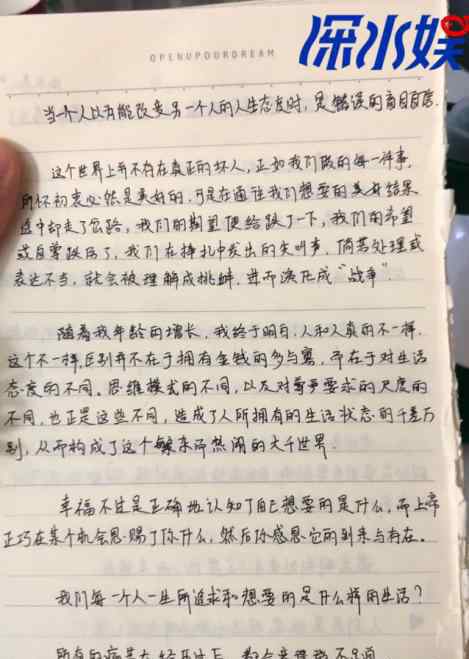 深水娱
OPENUPOURDREAM
当一个人以为能改变另一个人的人生态度时,是错误的盲目自信.
这个世界上并不存在真正的坏人,正如我们做的每一件事,
所怀初衷必然是美好的,可是在通往我们想要的美好结果
途中却走了岔路,我们的期望便给跌了一下,我们的希望
或自尊跌伤了,我们在挣扎中发出的尖叫声,倘若处理或
表达不当,就会被理解成挑衅,进而演化成“战争”.
随着我年龄的增长,我终于明白,人和人真的不一样,
这个不一样,区别并不在于拥有金钱的多与寡,而在于对生活
态度的不同、思维模式的不同,以及对尊严要求的尺度的
不同,也正是这些不同,造成了人所拥有的生活状态的千差万
别,从而构成了这个而热闹的大千世界.
幸福不过是正确地认知了自己想要的是什么,而上帝
正巧在某个机会恩赐了你什么,然后你感恩它的到来与存在。
我们每一个人一生所追求和想要的是什么样的生活?
所有的